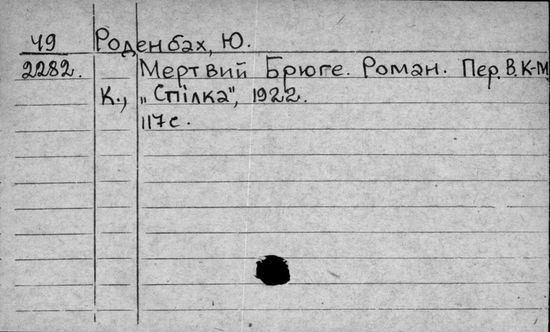 49 Роденбах, Ю.
2282. Мертвий Брюге. Роман. Пер. В. К-М
К., „Спілка", 1922.
117 с.